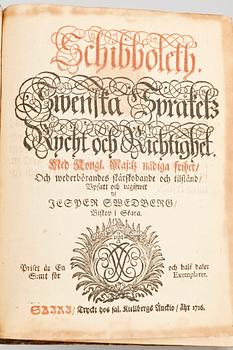 Schibboleth.
Swenska Språkets
Rycht och Richtighet.
Med Kongl. Maj:tz nådiga frihet/
Och wederbörandes skärskodande och tilstånd/
Upsatt och utgifwit
af
JESPER SWEDBERG/
Biskop i Skara.
Priset är En
och half daler
S:mt för
Exemplaret.
SKARA/ Tryckt hos sal. Kiellbergs Änckio/ åhr 1716.